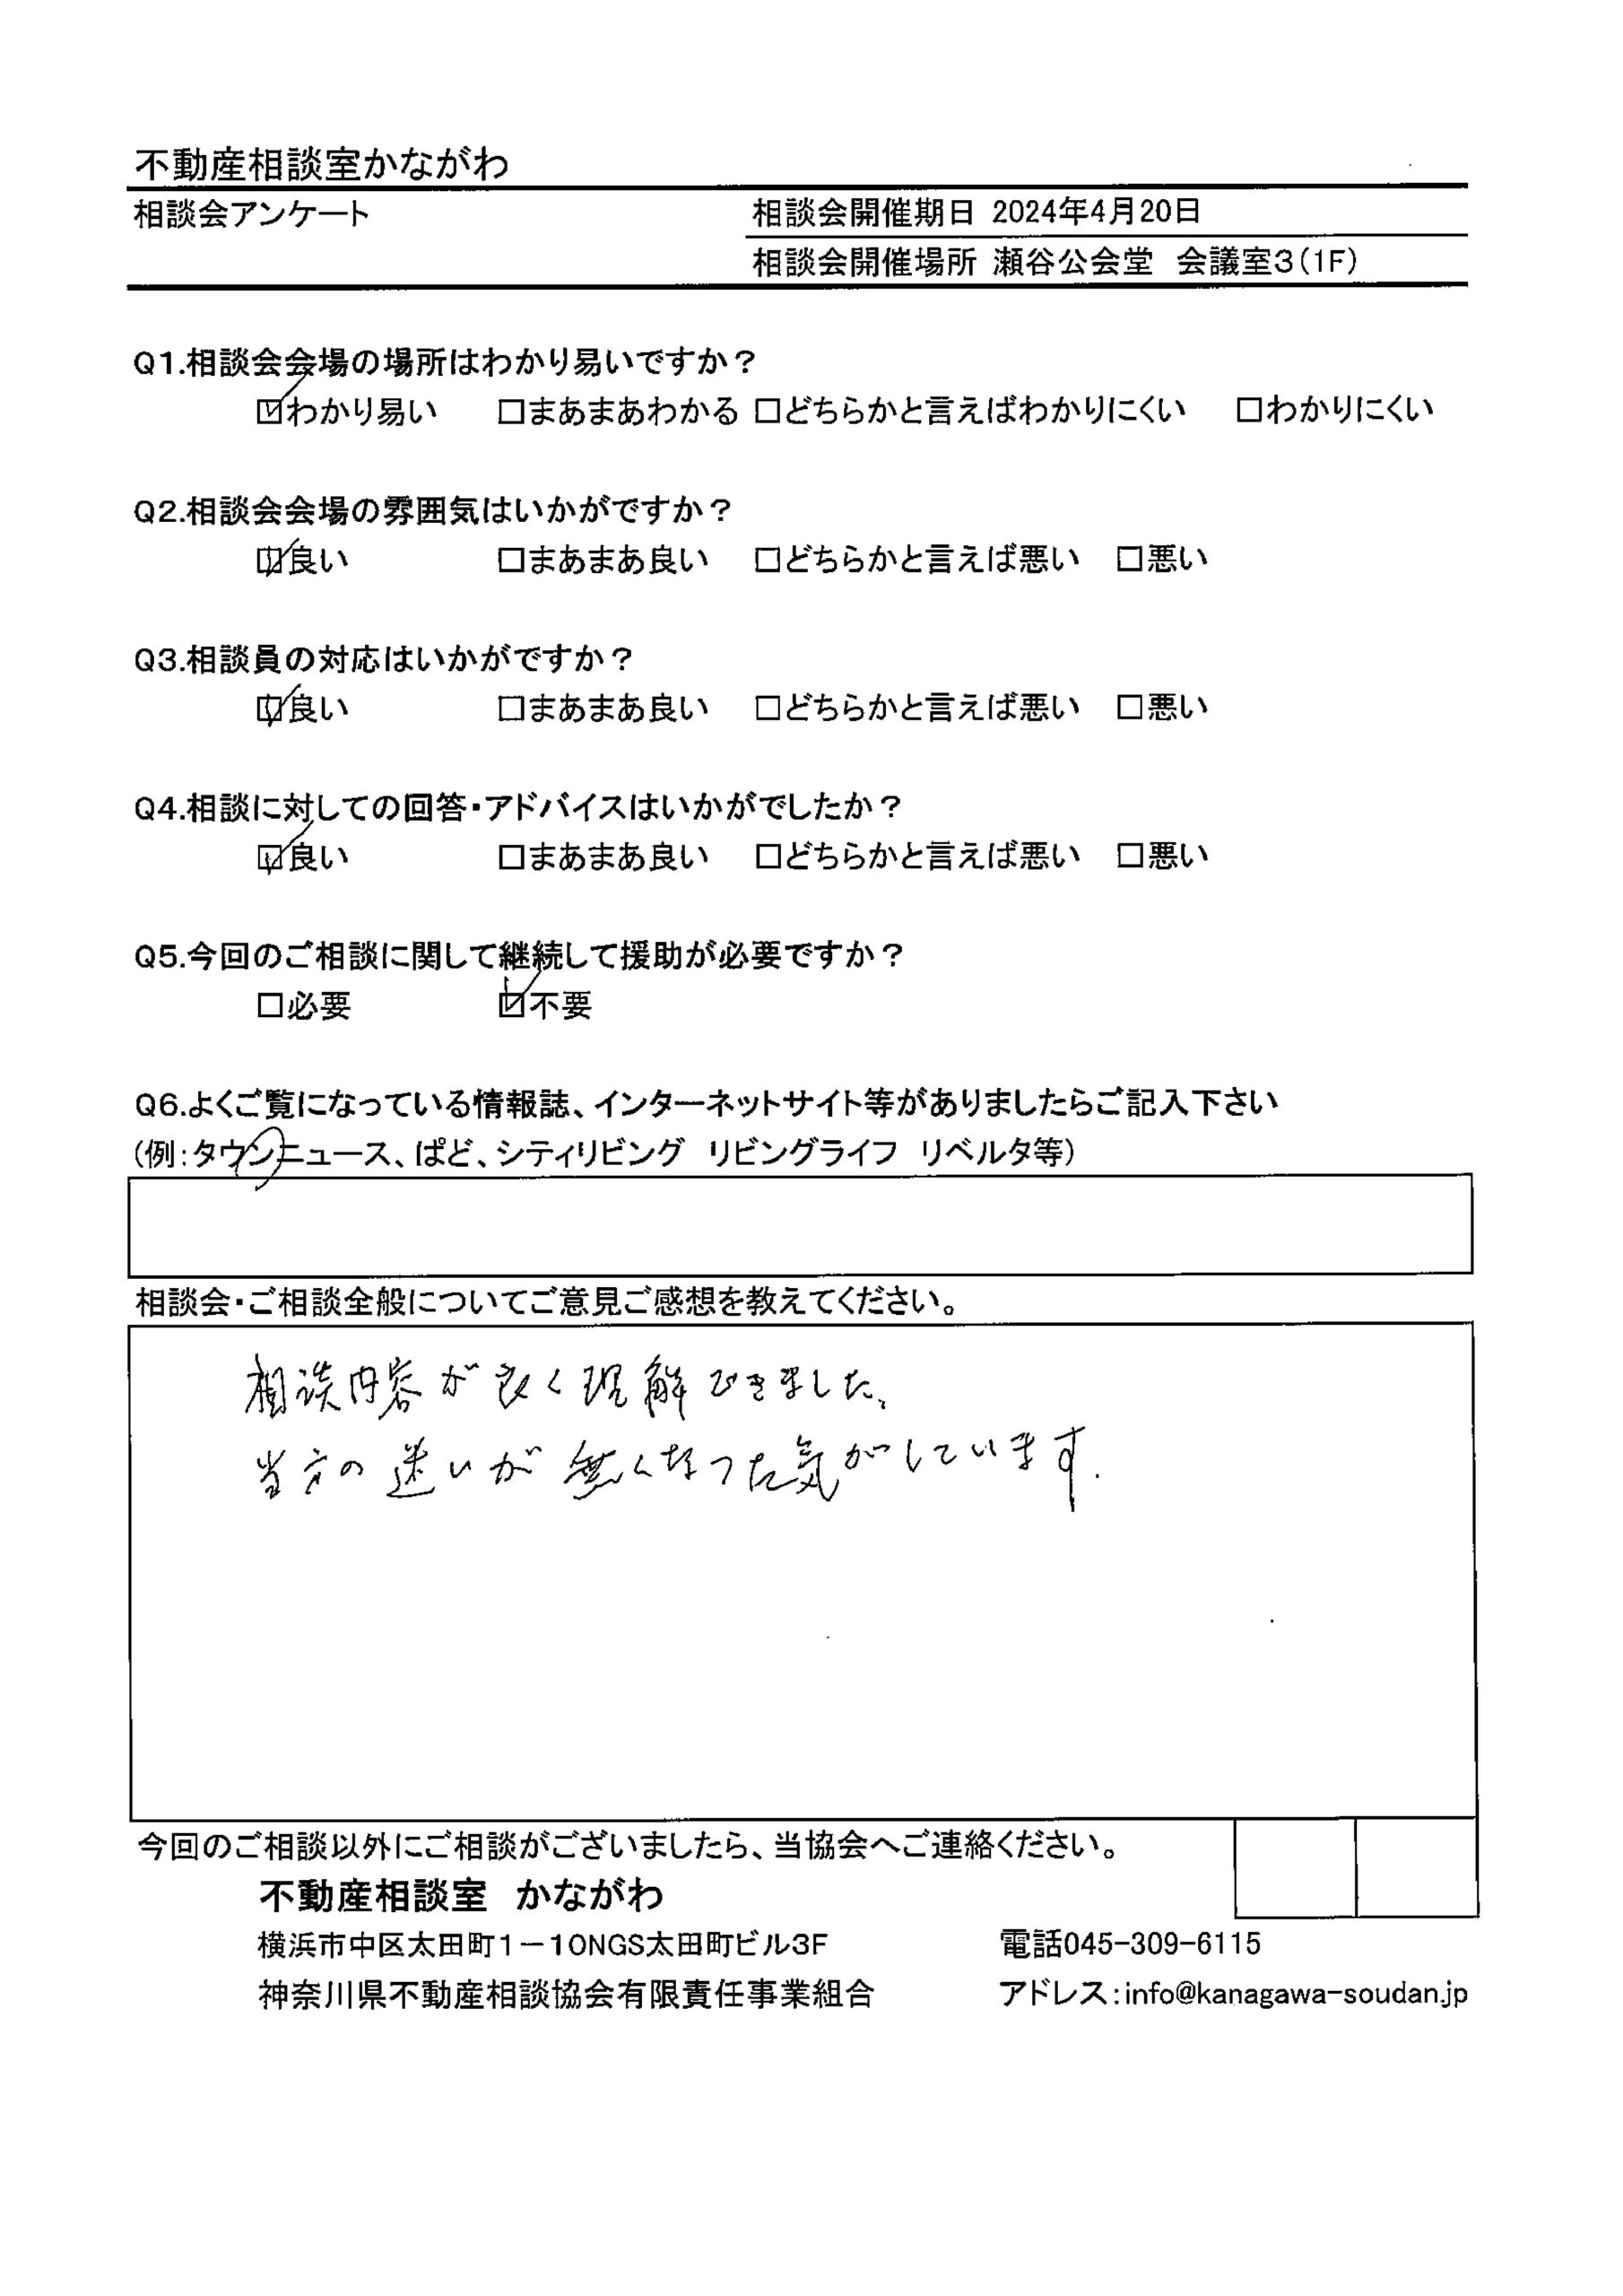 不動産相談室かながわ
相談会アンケート
相談会開催期日 2024年4月20日
相談会開催場所 瀬谷公会堂 会議室3(1F)
Q1.相談会会場の場所はわかり易いですか?
☑わかり易い □まあまあわかる □どちらかと言えばわかりにくい □わかりにくい
Q2.相談会会場の雰囲気はいかがですか?
☑良い □まあまあ良い □どちらかと言えば悪い □悪い
Q3.相談員の対応はいかがですか?
☑良い □まあまあ良い □どちらかと言えば悪い □悪い
Q4.相談に対しての回答・アドバイスはいかがでしたか?
☑良い □まあまあ良い □どちらかと言えば悪い □悪い
Q5.今回のご相談に関して継続して援助が必要ですか?
□必要 ☑不要
Q6.よくご覧になっている情報誌、インターネットサイト等がありましたらご記入下さい
(例:タウンニュース、ぱど、シティリビング リビングライフ リベルタ等)
相談会・ご相談全般についてご意見ご感想を教えてください。
相談内容が良く理解できました。
当方の迷いが無くなった気がしています.
今回のご相談以外にご相談がございましたら、当協会へご連絡ください。
不動産相談室 かながわ
横浜市中区太田町1-10NGS太田町ビル3F 電話045-309-6115
神奈川県不動産相談協会有限責任事業組合 アドレス:info@kanagawa-soudan.jp